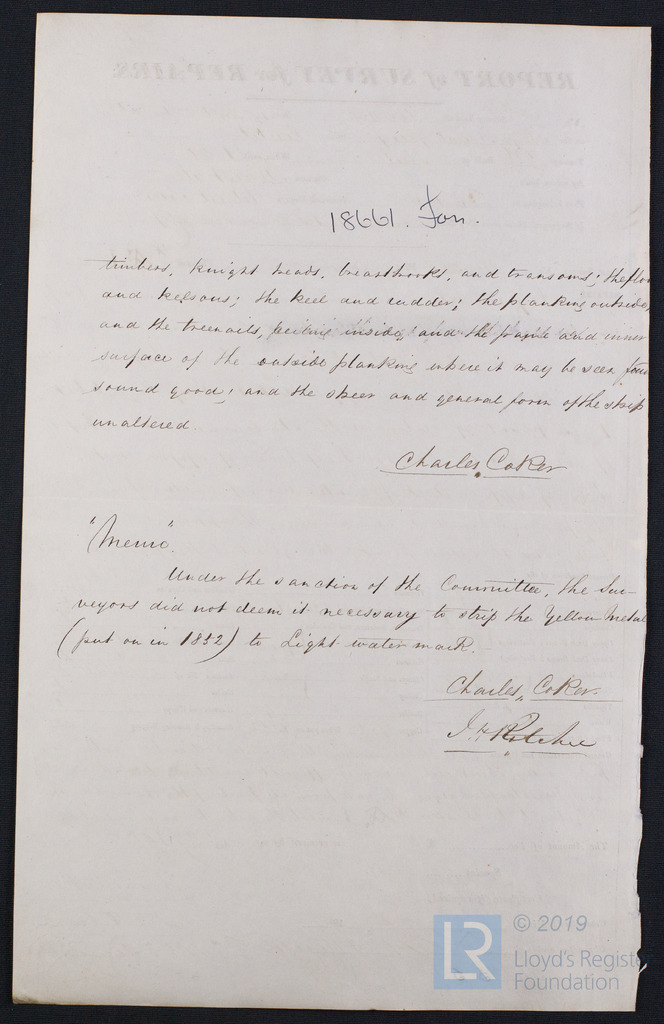 REPORT of SURVEY for REPAIRS
18661. Fon.
timbers, knight heads, breasthooks, and transoms; the floo
and kelsons; the keel and rudder; the planking outside,
and the treenails, ceiling inside, and the frame and inner
surface of the outside planking where it may be seen foun
sound good; and the sheer and general form of the ship
unaltered
Charles Coker
"Memo".
Under the sanction of the Committee, the Sur-
veyors did not deem it necessary to strip the Yellow Metal
(put on in 1852) to Light water mark.
Charles Coker.
J. H. Ritchie
LR © 2019
Lloyd's Register
Foundation